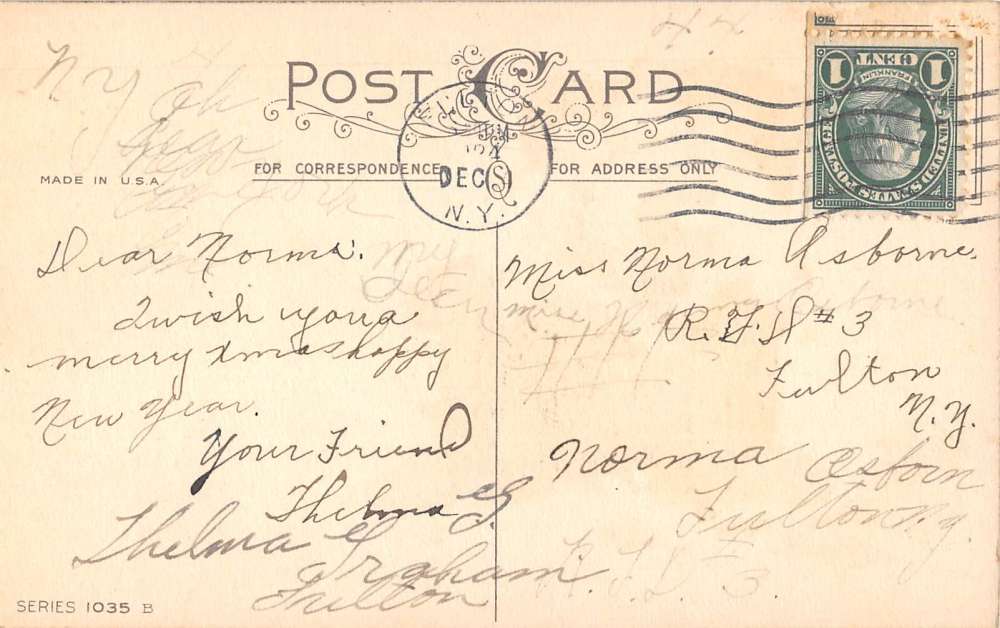 POST CARD
FOR CORRESPONDENCE
FOR ADDRESS ONLY
MADE IN U.S.A.
DEC
N.Y.
1 CENT 1
FRANKLIN
N Y
Dear Norma:
I wish you a
merry xmas happy
New Year.
Your Friend
Thelma G.
Thelma Graham
Fulton
Miss Norma Osborne
R.F.D #3
Fulton
N.Y.
Norma Osborn
Fulton N.Y.
R.F.D 3
SERIES 1035 B